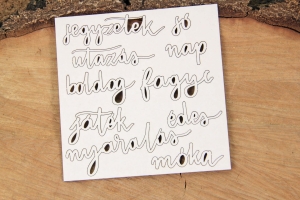 jegyzetek jó
utazás nap
boldog fagyi
játék édes
nyaralás
móka